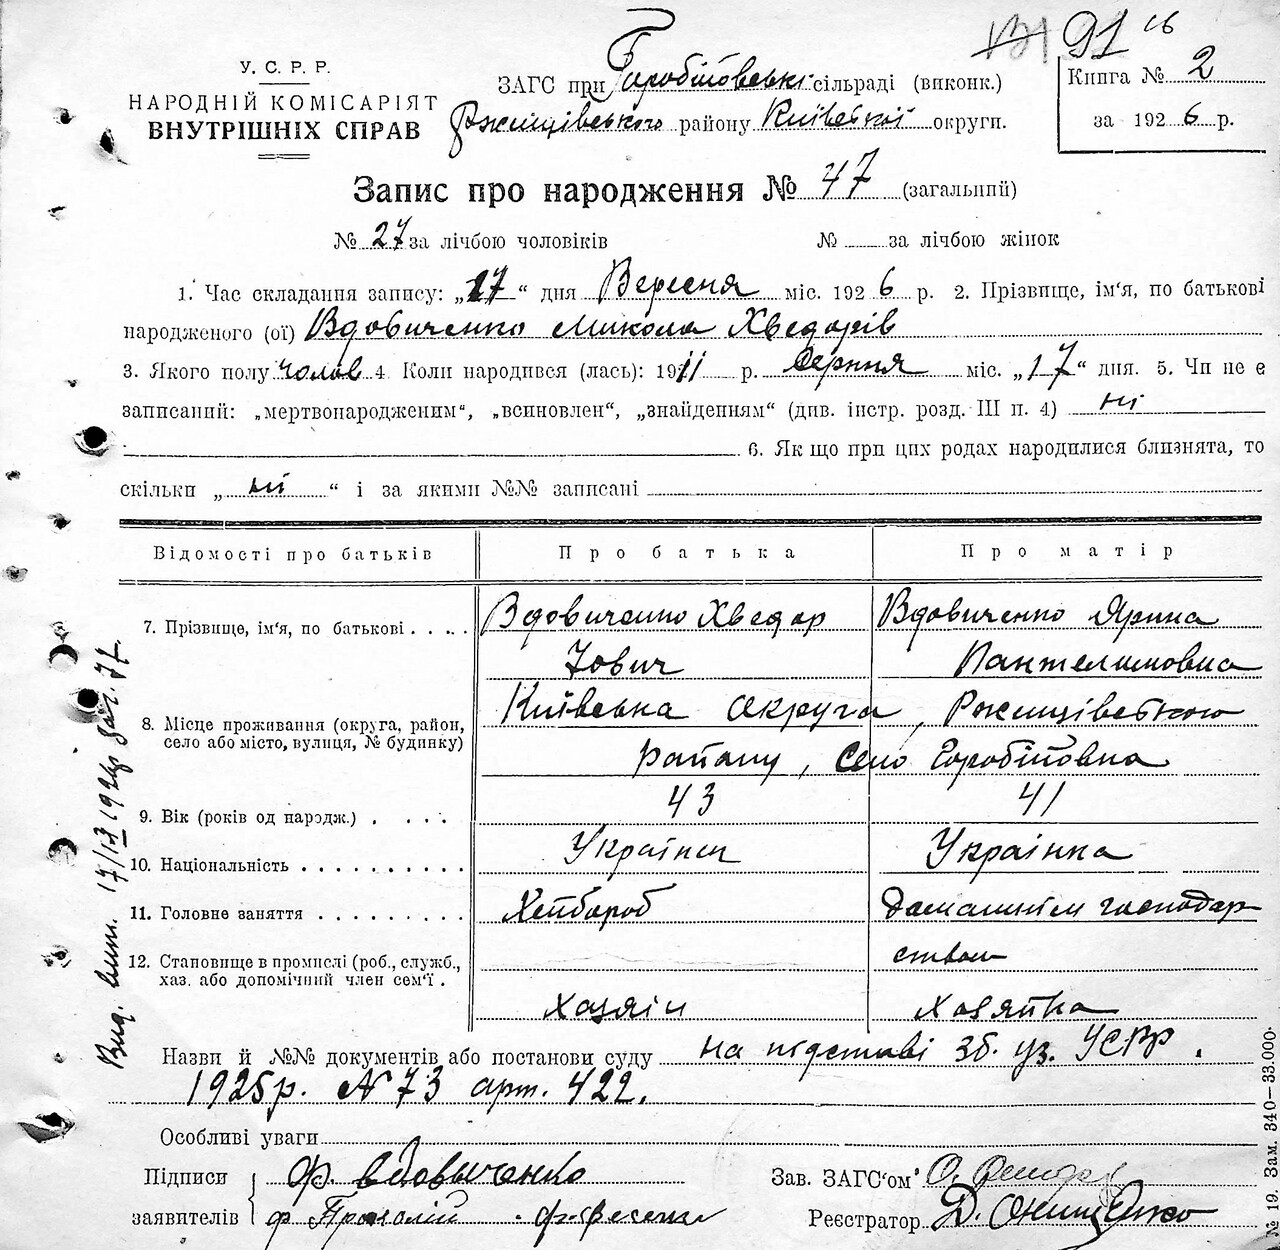 91
У. С. Р. Р.
НАРОДНІЙ КОМІСАРІЯТ
ВНУТРІШНІХ СПРАВ
ЗАГС при Горобіївські сільраді (виконк.)
Ржищівського району Київської округи.
Книга № 2
за 1926 р.
Запис про народження № 47 (загальний)
№ 27 за лічбою чоловіків № за лічбою жінок
1. Час складання запису: „17“ дня Вересня міс. 1926 р. 2. Прізвище, ім'я, по батькові
народженого (ої) Вдовиченко Микола Хведорів
3. Якого полу чолов 4. Коли народився (лась): 1911 р. Серпня міс. „17“ дня. 5. Чи не є
записаний: „мертвонародженим“, „всиновлен“, „знайденням“ (див. інстр. розд. III п. 4) ні
6. Як що при цих родах народилися близнята, то
скільки „ні“ і за якими №№ записані
Відомості про батьків Про батька Про матір
7. Прізвище, ім'я, по батькові . . . . . Вдовиченко Хведор Вдовиченко Ярина
Йович Пантелимовна
8. Місце проживання (округа, район, Київська округа, Ржищівського
село або місто, вулиця, № будинку) району, Село Горобіївка
9. Вік (років од народж.) . . . . 43 41
10. Національність . . . . . . . . . . Українец Українка
11. Головне заняття . . . . . . . . . Хлібороб Домашнім господар
12. Становище в промислі (роб., служб., ством
хаз. або допомічний член сем'ї . хазяїн хазяйка
Назви й №№ документів або постанови суду на підставі Зб. уз. УСРР.
1925 р. № 73 арт. 422.
Особливі уваги
Підписи Ф. Вдовиченко Зав. ЗАГС'ом
заявителів Реєстратор Д. Онищенко
Вид. вип. 17/IX 1926
№ 19. Зам. 340—33.000.